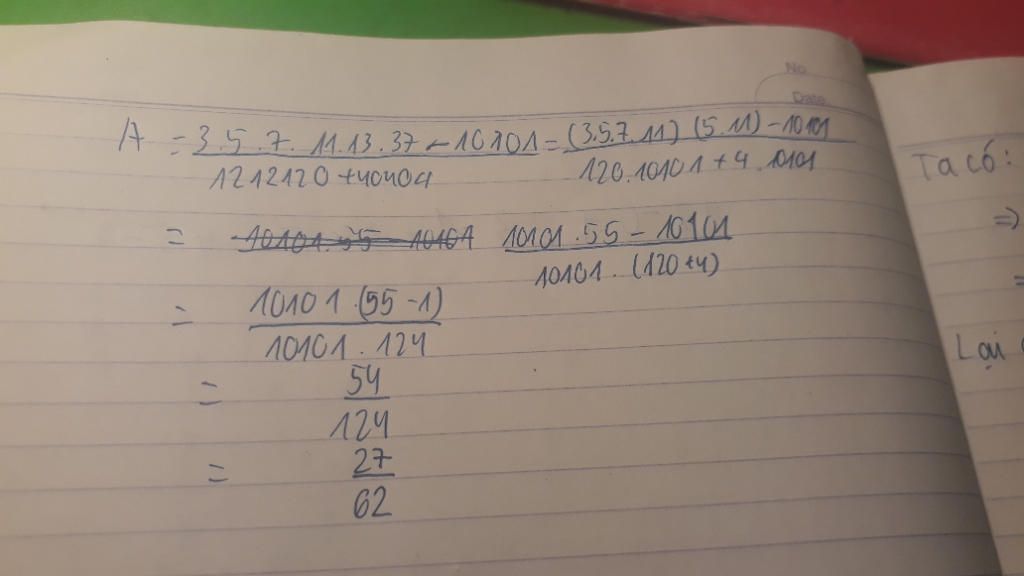 No
Date
A = 3.5.7.11.13.37 - 10101 / 1212120 + 40404 = (3.5.7.11) (5.11) - 10101 / 120.10101 + 4.10101
= 10101.55 - 10101 10101.55 - 10101 / 10101.(120+4)
= 10101.(55-1) / 10101.124
= 54 / 124
= 27 / 62
Ta có:
⇒
=
Lại